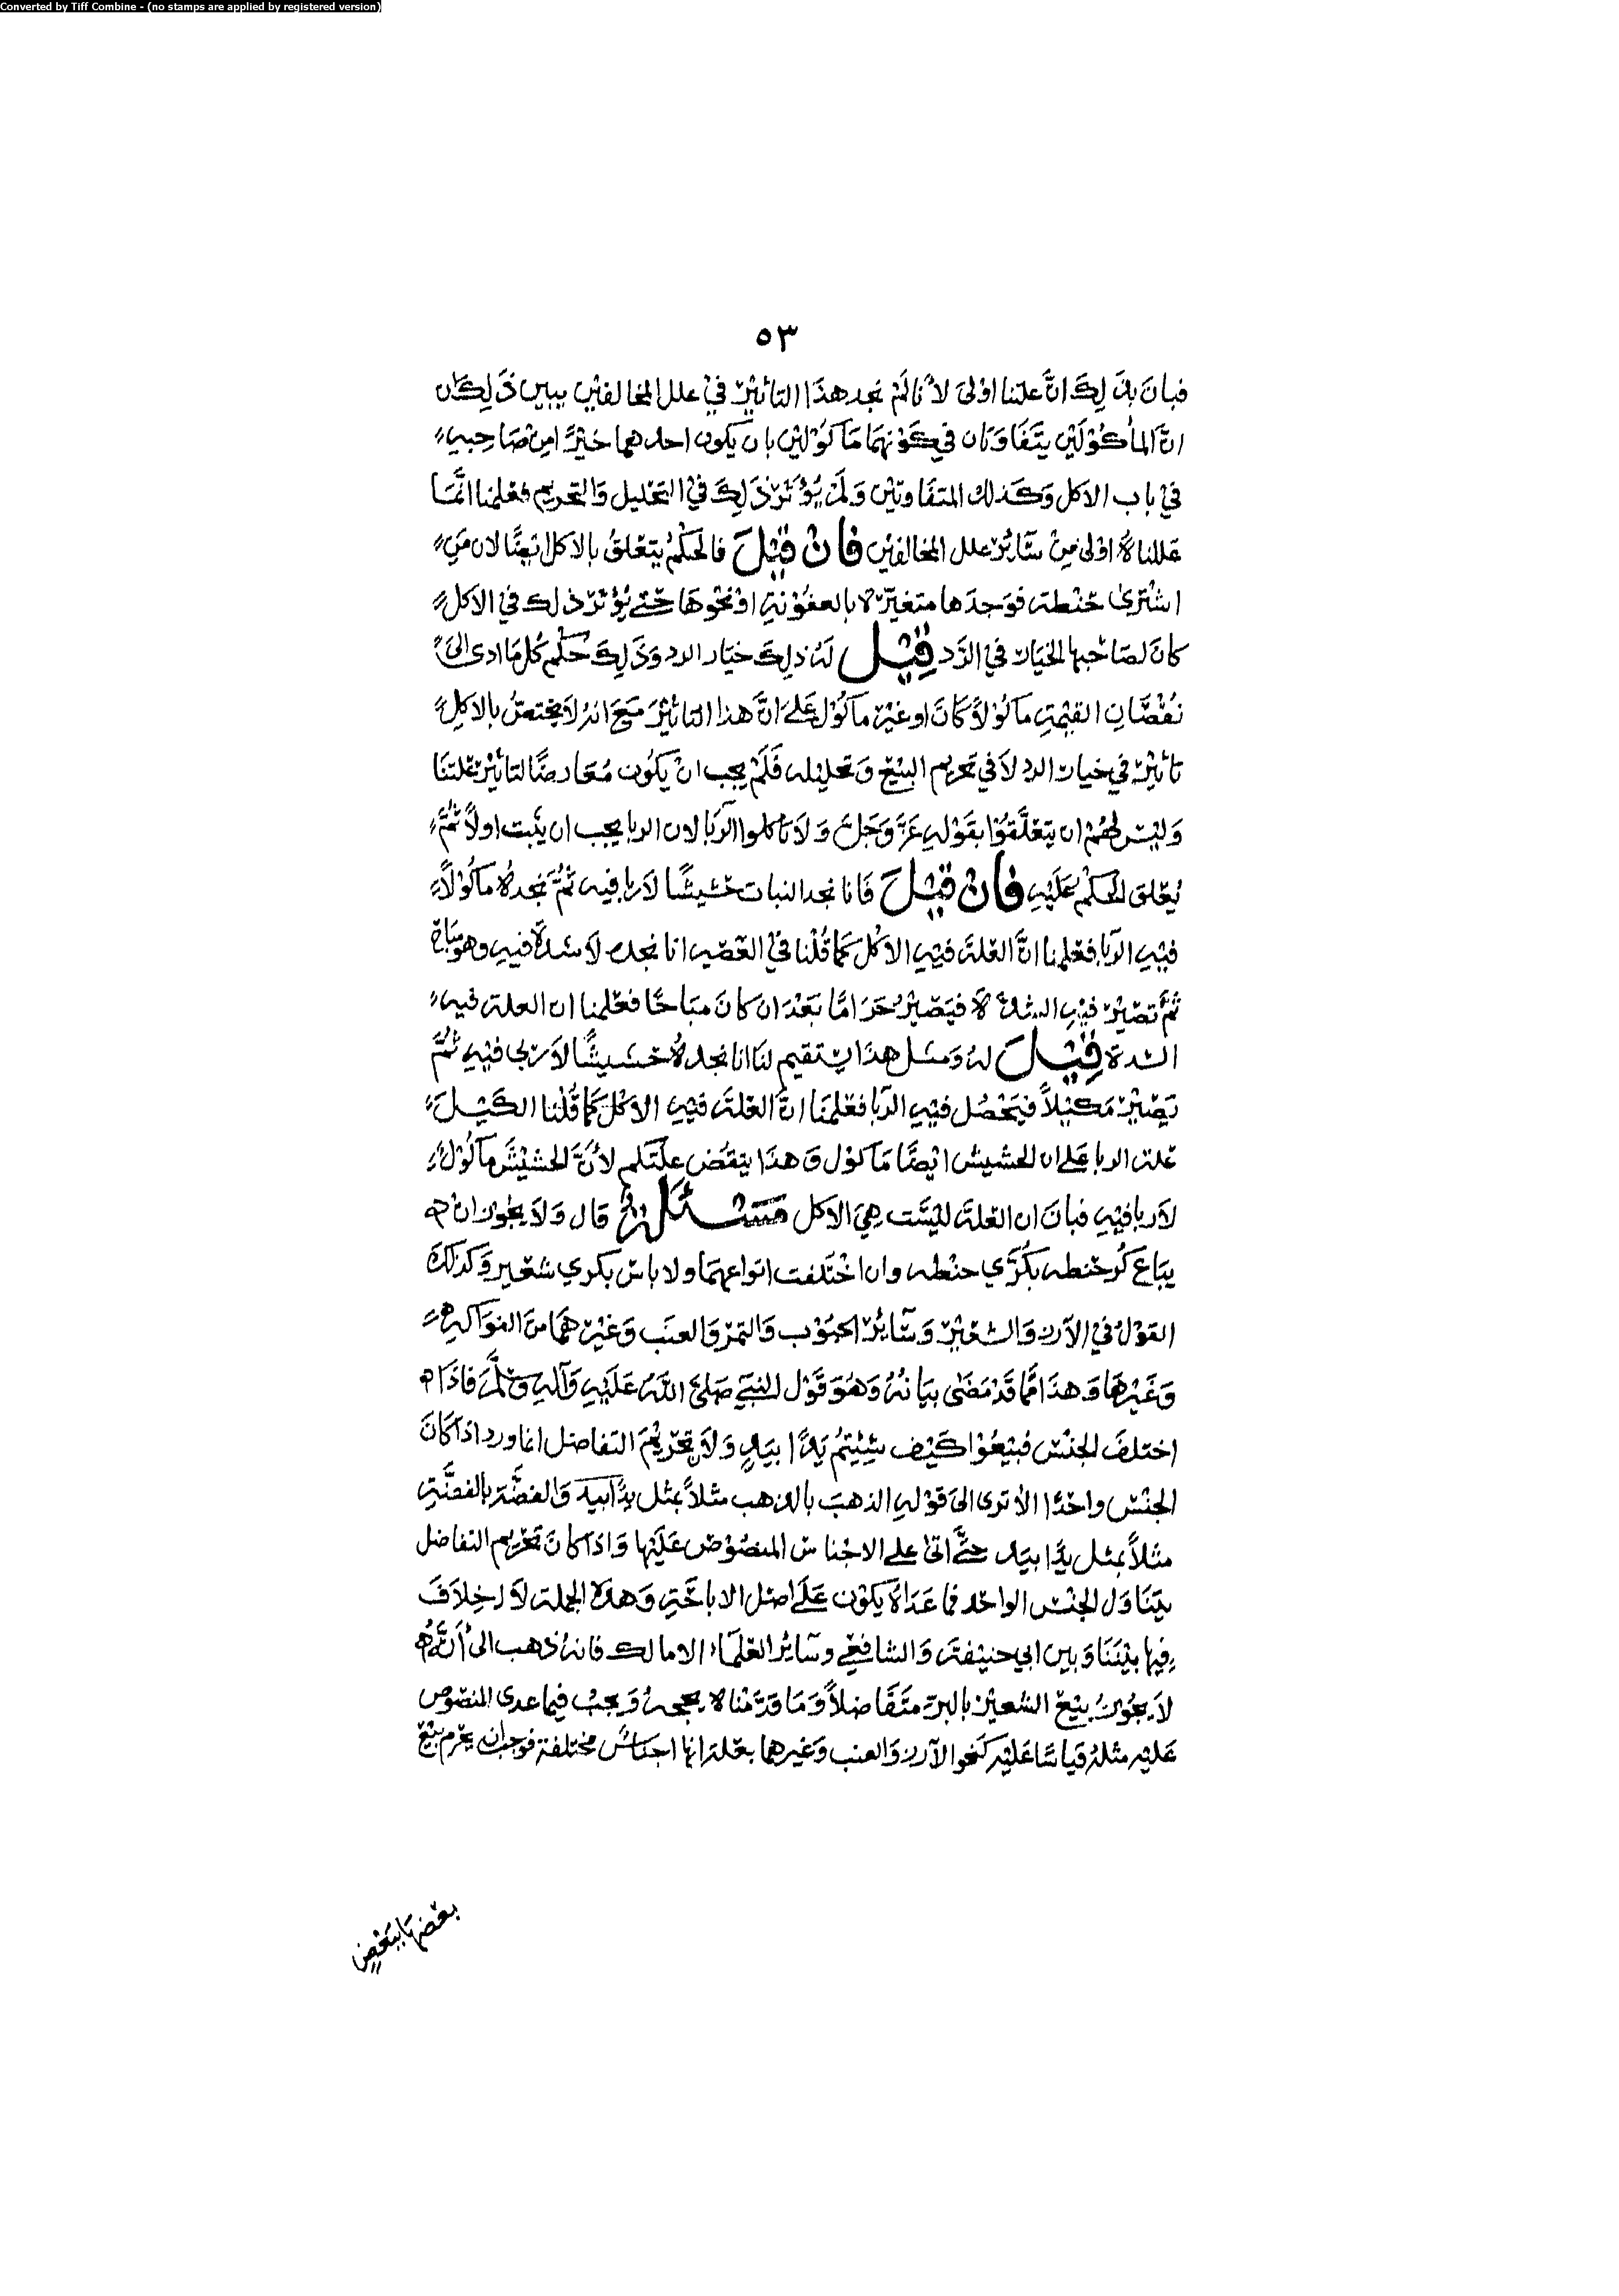 Converted by Tiff Combine - (no stamps are applied by registered version)
٥٣
فبان بذلك انَّ علتنا اولى لأنا لم نجد هذا التأثير في علل المخالفين يبين ذلك ان
انَّ المأكولين يتفاوتان في كونهما مأكولين بان يكون احدهما خيرًا من صاحبه
في باب الاكل وكذلك المتفاوتين ولم يؤثر ذلك في التحليل والتحريم فعلمنا انَّما
عللناه اولى من سائر علل المخالفين فان قيل فالحكم يتعلق بالاكل ايضًا لان من
اشترى حنطة فوجدها متغيرة بالعفونة او نحوها حتى يؤثر ذلك في الاكل
كان لصاحبها الخيار في الرد قيل له ذلك خيار الرد وذلك حكم كل ما ادى الى
نقصان القيمة مأكولاً كان او غير مأكول على انَّ هذا التأثير مع انه لا يختص بالاكل
تأثير في خيار الرد لا في تحريم البيع وتحليله فلم يجب ان يكون معارضًا لتأثير علتنا
وليس لهم ان يتعلقوا بقوله عز وجل ولا تأكلوا الربا لان الربا يجب ان يثبت اولاً ثمَّ
يعلق الحكم عليه فان قيل فانا نجد النبات حشيشًا لا ربا فيه ثمَّ نجده مأكولاً
فيه الربا فعلمنا انَّ العلة فيه الاكل كما قلنا في العصير انا نجده لا شدة فيه وهو مباح
ثمَّ تصير فيه الشدة فيصير حرامًا بعد ان كان مباحًا فعلمنا ان العلة فيه
الشدة قيل له ومثل هذا يستقيم لنا انا نجده حشيشًا لا ربى فيه ثمَّ
يصير مكيلاً فيحصل فيه الربا فعلمنا انَّ العلة فيه الاكل كما قلنا الكيل
علة الربا على ان الحشيش ايضًا مأكول وهذا ينقض علتكم لأنَّ الحشيش مأكول
لا ربا فيه فبان ان العلة ليست هي الاكل مسئلة قال ولا يجوز ان
يباع كر حنطه بكري حنطه وان اختلفت انواعهما ولا باس بكري شعير وكذلك
القول في الأرز والشعير وسائر الحبوب والتمر والعنب وغيرهما من الفواكه
وغيرها وهذا مما قد مضى بيانه وهو قول النبي صلى الله عليه وآله وسلم فاذا
اختلف الجنس فبيعوا كيف شئيتم يدًا بيد ولان تحريم التفاضل انما ورد اذا كان
الجنس واحدًا الا ترى الى قوله الذهب بالذهب مثلاً بمثل يدًا بيد والفضة بالفضة
مثلاً بمثل يدًا بيد حتَّى اتى على الاجناس المنصوص عليها واذا كان تحريم التفاضل
يتناول الجنس الواحد فما عداه يكون على اصل الاباحة وهذه الجملة لا خلاف
فيها بيننا وبين ابي حنيفة والشافعي وسائر العلماء الا مالك فانه ذهب الى أنَّه
لا يجوز بيع الشعير بالبر متفاضلاً وما قدمنا لا يحجه ويجب فيما عدى المنصوص
عليه مثله قياسًا عليه كنحو الأرز والعنب وغيرهما بعلة انها اجناس مختلفة فوجب ان يحرم بيع
بعضها ببعض